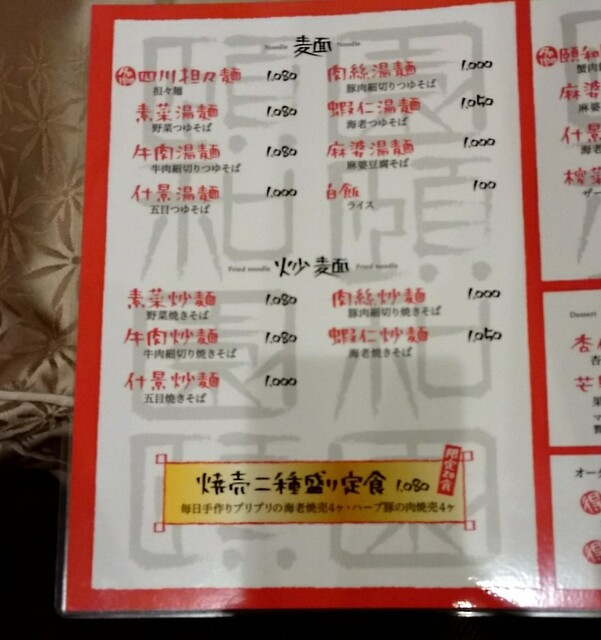 Noodle 麦面 Noodle
四川担々麺 1,080
担々麺
素菜湯麺 1,080
野菜つゆそば
牛肉湯麺 1,080
牛肉細切りつゆそば
什景湯麺 1,000
五目つゆそば
肉絲湯麺 1,000
豚肉細切りつゆそば
蝦仁湯麺 1,050
海老つゆそば
麻婆湯麺 1,000
麻婆豆腐そば
白飯 100
ライス
Fried noodle 炒麦面 Fried noodle
素菜炒麺 1,080
野菜焼きそば
牛肉炒麺 1,080
牛肉細切り焼きそば
什景炒麺 1,000
五目焼きそば
肉絲炒麺 1,000
豚肉細切り焼きそば
蝦仁炒麺 1,050
海老焼きそば
焼売二種盛り定食 1,080
限定20食
毎日手作りプリプリの海老焼売4ヶ・ハーブ豚の肉焼売4ヶ
頤和
蟹肉
麻婆
麻婆
什景
海老
榨菜
ザー
Dessert
杏
杏
芒